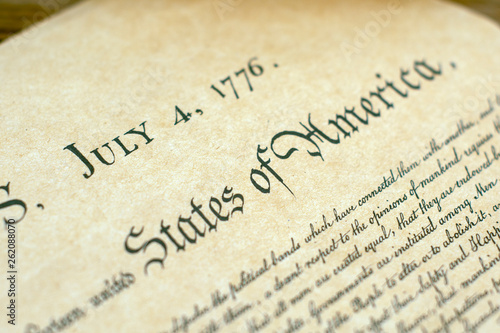 S, JULY 4, 1776.
rteen united States of America,
the political bands which have connected them with another, and
a decent respect to the opinions of mankind requires
that all men are created equal, that they are endowed by
Governments are instituted among Men,
of the People to alter or to abolish it, and
their Safety and Happ
mankind
262088070